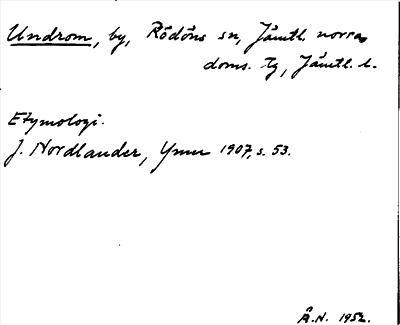 Undrom, by, Rödöns sn, Jämtl. norra
doms. tg, Jämtl. l.
Etymologi.
J. Nordlander, Ymer 1907, s. 53.
Å.N. 1952.